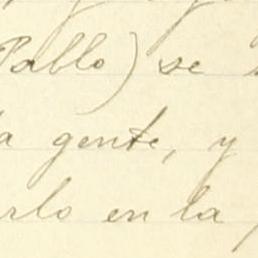 Pablo) se
la gente, y
rlo en la